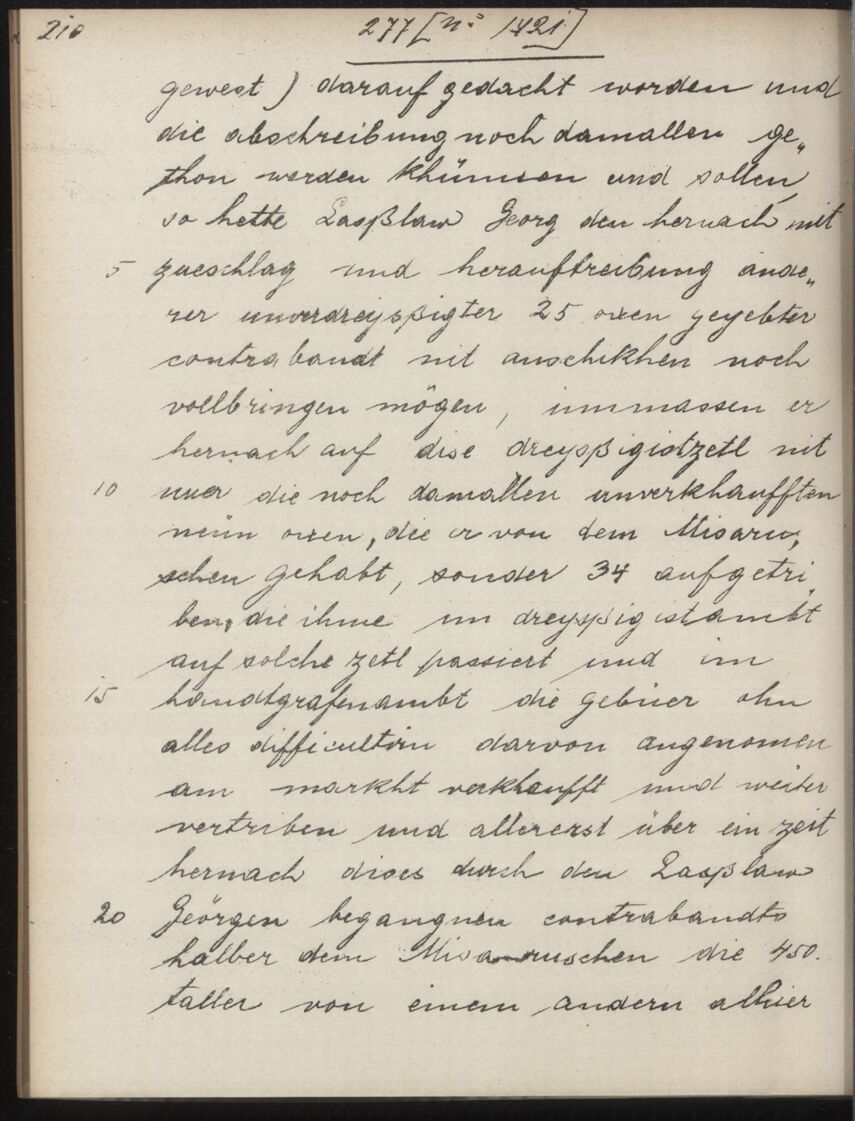 210
277 [nº 1421]
gewest) darauf gedacht worden und
die abschreibung noch damallen ge„
thon werden khünnen und sollen,
so hette Lasßlaw Georg den hernach mit
5 zueschlag und herauftreibung ande„
rer unverdreysßigter 25 oxen geyebter
contrabandt nit anschikhen noch
vollbringen mögen, immassen er
hernach auf dise dreysßigistzetl nit
10 nuer die noch damallen unverkhaufften
neün oxen, die er von dem Misaru,
schen gehabt, sonder 34 aufgetri„
ben, die ihme im dreysßigistambt
auf solche zetl passiert und im
15 handtgrafenambt die gebüer ohn
alles difficultirn darvon angenomen
am markht verkhaufft und weiter
vertriben und allererst über ein zeit
hernach dises durch den Lasßlaw
20 Geörgen begangnen contrabandts
halber dem Misaruschen die 450.
taller von einem andern alhier